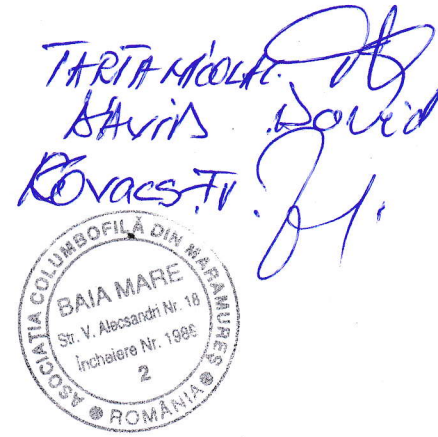 TARTA NICOLAE
DAVID David
Kovacs Fr.
ASOCIAȚIA COLUMBOFILĂ DIN MARAMUREȘ
BAIA MARE
Str. V. Alecsandri Nr. 18
Încheiere Nr. 1986
2
ROMÂNIA